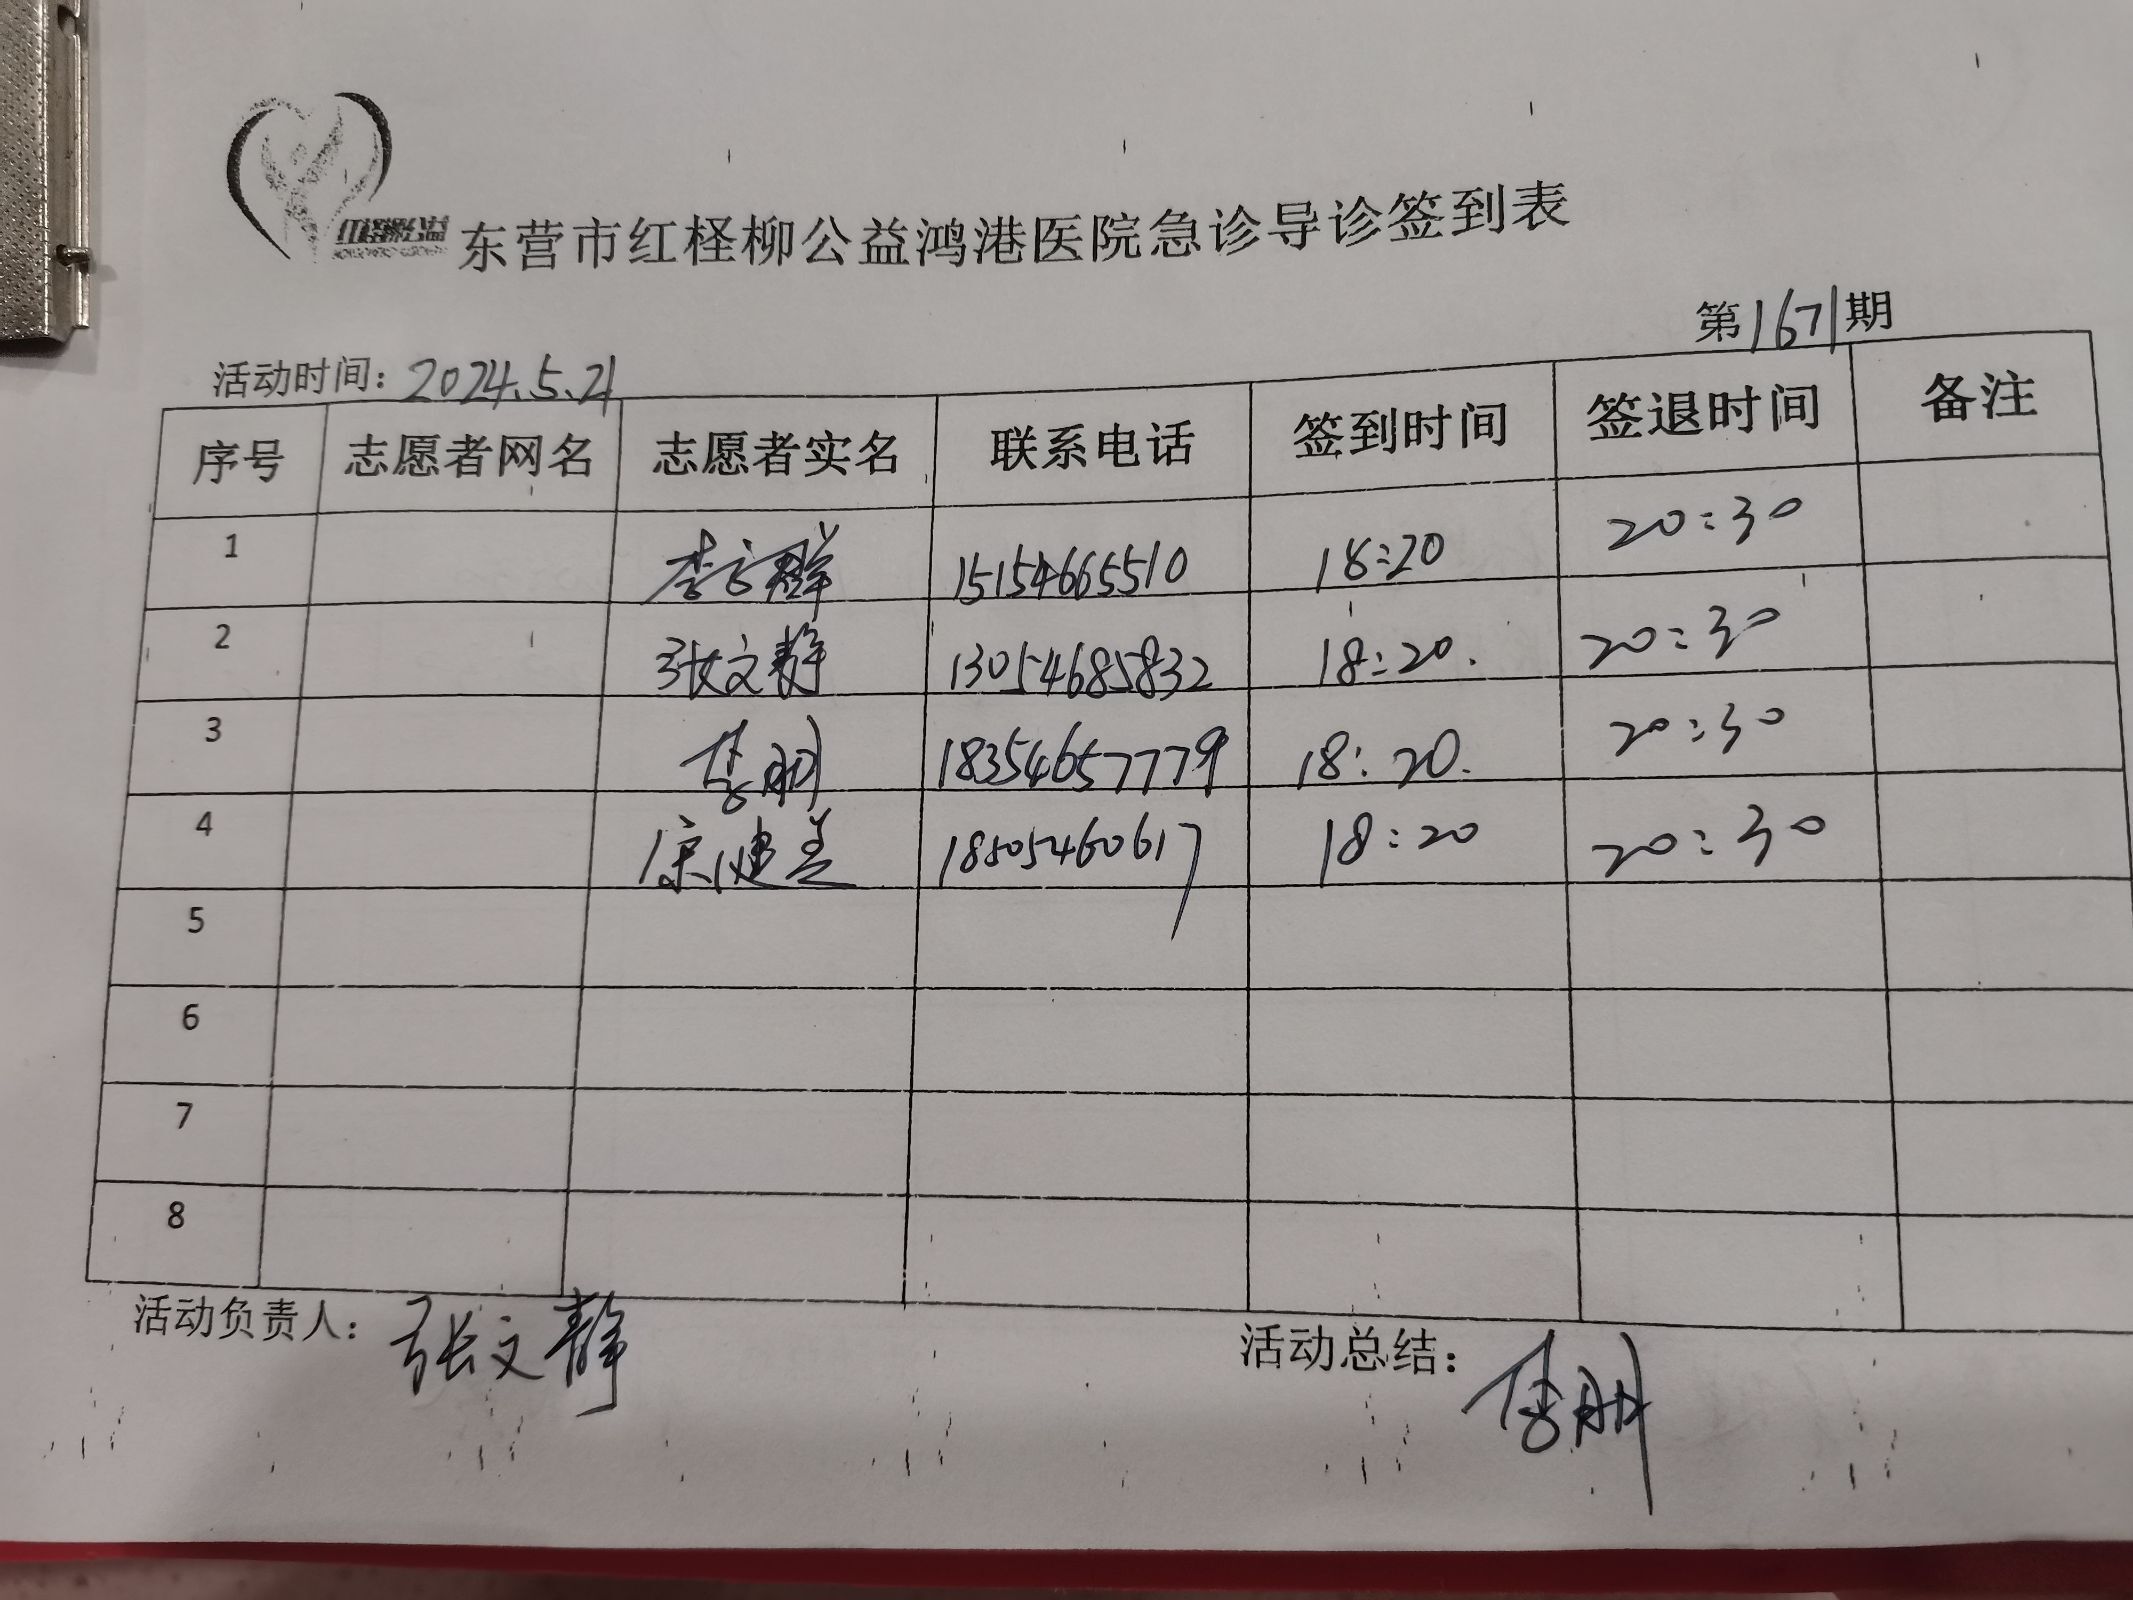 红柽柳公益
东营市红柽柳公益鸿港医院急诊导诊签到表
第1671期
活动时间：2024.5.21
序号 志愿者网名 志愿者实名 联系电话 签到时间 签退时间 备注
1 李文群 15154665510 18:20 20:30
2 张文静 13054685832 18:20. 20:30
3 李朋 18354657779 18:20. 20:30
4 18505460617 18:20 20:30
5
6
7
8
活动负责人：张文静
活动总结：李朋